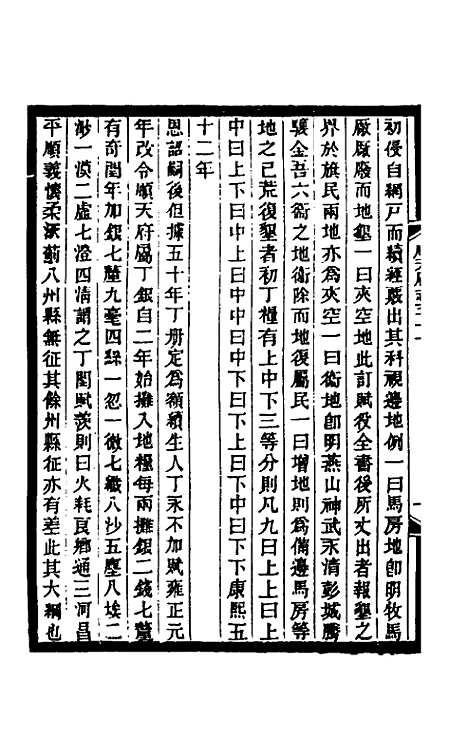 初侵自網戸而續經蒐出其科視邊地例一曰馬房地卽明牧馬
厰厰廢而地墾一曰夾空地此訂賦役全書後所丈出者報墾之
界於旗民兩地亦爲夾空一曰衞地卽明燕山神武永淸彭城騰
驤金吾六衞之地衞除而地復屬民一曰增地則爲備邊馬房等
地之已荒復墾者初丁糧有上中下三等分則凡九曰上上曰上
中曰上下曰中上曰中中曰中下曰下上曰下中曰下下康熙五
十二年
恩詔嗣後但據五十年丁册定爲額續生人丁永不加賦雍正元
年改令順天府屬丁銀自二年始攤入地糧每兩攤銀二錢七釐
有奇閏年加銀七釐九毫四絲一忽一微七纖八沙五塵八埃二
渺一漠二虛七澄四清謂之丁閏賦羨則曰火耗良鄉通三河昌
平順義懷柔涿薊八州縣無征其餘州縣征亦有差此其大綱也